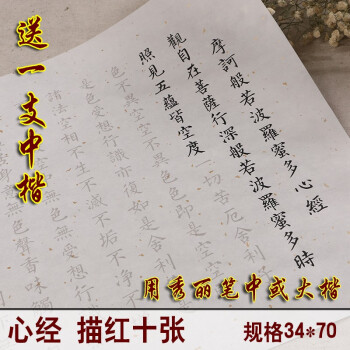 送一支中楷
摩訶般若波羅蜜多心經
觀自在菩薩行深般若波羅蜜多時
照見五蘊皆空度一切苦厄舍利
色不異空空不異色色即是空空
是色受想行識亦復如是舍利
諸法空相不生不滅不垢不淨不
色無受想行
色聲香味觸
用秀丽笔中或大楷
心经 描红十张 规格34*70